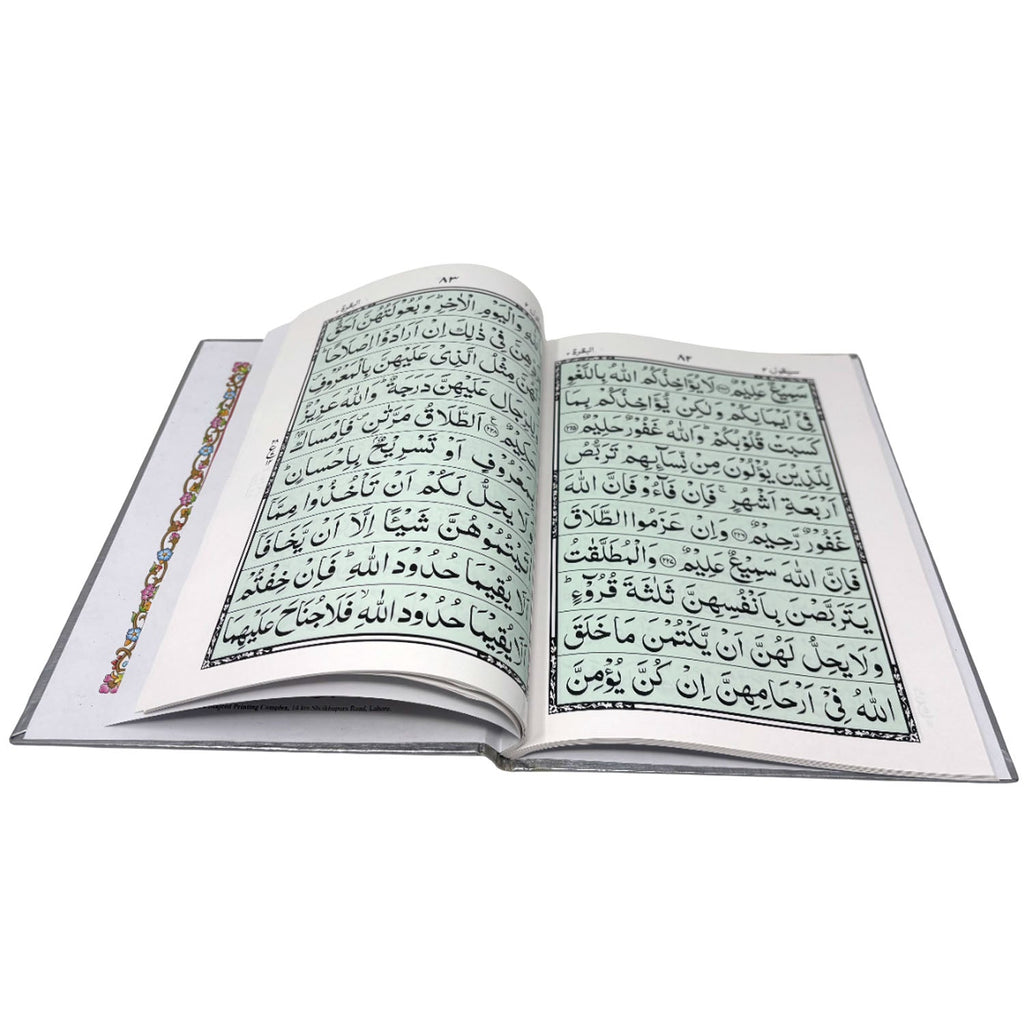 سيقول ٢
٨٢
البقرة ٢
سَمِيْعٌ عَلِيْمٌ ﴿٢٢٤﴾ لَا يُؤَاخِذُكُمُ اللّٰهُ بِاللَّغْوِ
فِيْٓ اَيْمَانِكُمْ وَلٰكِنْ يُّؤَاخِذُكُمْ بِمَا
كَسَبَتْ قُلُوْبُكُمْ ؕ وَاللّٰهُ غَفُوْرٌ حَلِيْمٌ ﴿٢٢٥﴾
لِلَّذِيْنَ يُؤْلُوْنَ مِنْ نِّسَآئِهِمْ تَرَبُّصُ
اَرْبَعَةِ اَشْهُرٍ ۚ فَاِنْ فَآءُوْ فَاِنَّ اللّٰهَ
غَفُوْرٌ رَّحِيْمٌ ﴿٢٢٦﴾ وَاِنْ عَزَمُوا الطَّلَاقَ
فَاِنَّ اللّٰهَ سَمِيْعٌ عَلِيْمٌ ﴿٢٢٧﴾ وَالْمُطَلَّقٰتُ
يَتَرَبَّصْنَ بِاَنْفُسِهِنَّ ثَلٰثَةَ قُرُوْٓءٍ ؕ
وَلَا يَحِلُّ لَهُنَّ اَنْ يَّكْتُمْنَ مَا خَلَقَ
اللّٰهُ فِيْٓ اَرْحَامِهِنَّ اِنْ كُنَّ يُؤْمِنَّ
٨٣
البقرة ٢
وَالْيَوْمِ الْاٰخِرِ ؕ وَبُعُوْلَتُهُنَّ اَحَقُّ
فِيْ ذٰلِكَ اِنْ اَرَادُوْٓا اِصْلَاحًا ؕ
مِثْلُ الَّذِيْ عَلَيْهِنَّ بِالْمَعْرُوْفِ
لِلرِّجَالِ عَلَيْهِنَّ دَرَجَةٌ ؕ وَاللّٰهُ عَزِيْزٌ
حَكِيْمٌ ﴿٢٢٨﴾ اَلطَّلَاقُ مَرَّتٰنِ ۪ فَاِمْسَاكٌۢ
بِمَعْرُوْفٍ اَوْ تَسْرِيْحٌۢ بِاِحْسَانٍ ؕ
وَلَا يَحِلُّ لَكُمْ اَنْ تَاْخُذُوْا مِمَّآ
اٰتَيْتُمُوْهُنَّ شَيْئًا اِلَّآ اَنْ يَّخَافَآ
اَلَّا يُقِيْمَا حُدُوْدَ اللّٰهِ ؕ فَاِنْ خِفْتُمْ
اَلَّا يُقِيْمَا حُدُوْدَ اللّٰهِ ۙ فَلَا جُنَاحَ عَلَيْهِمَا
Printing Complex, 14 km Sheikhupura Road, Lahore.